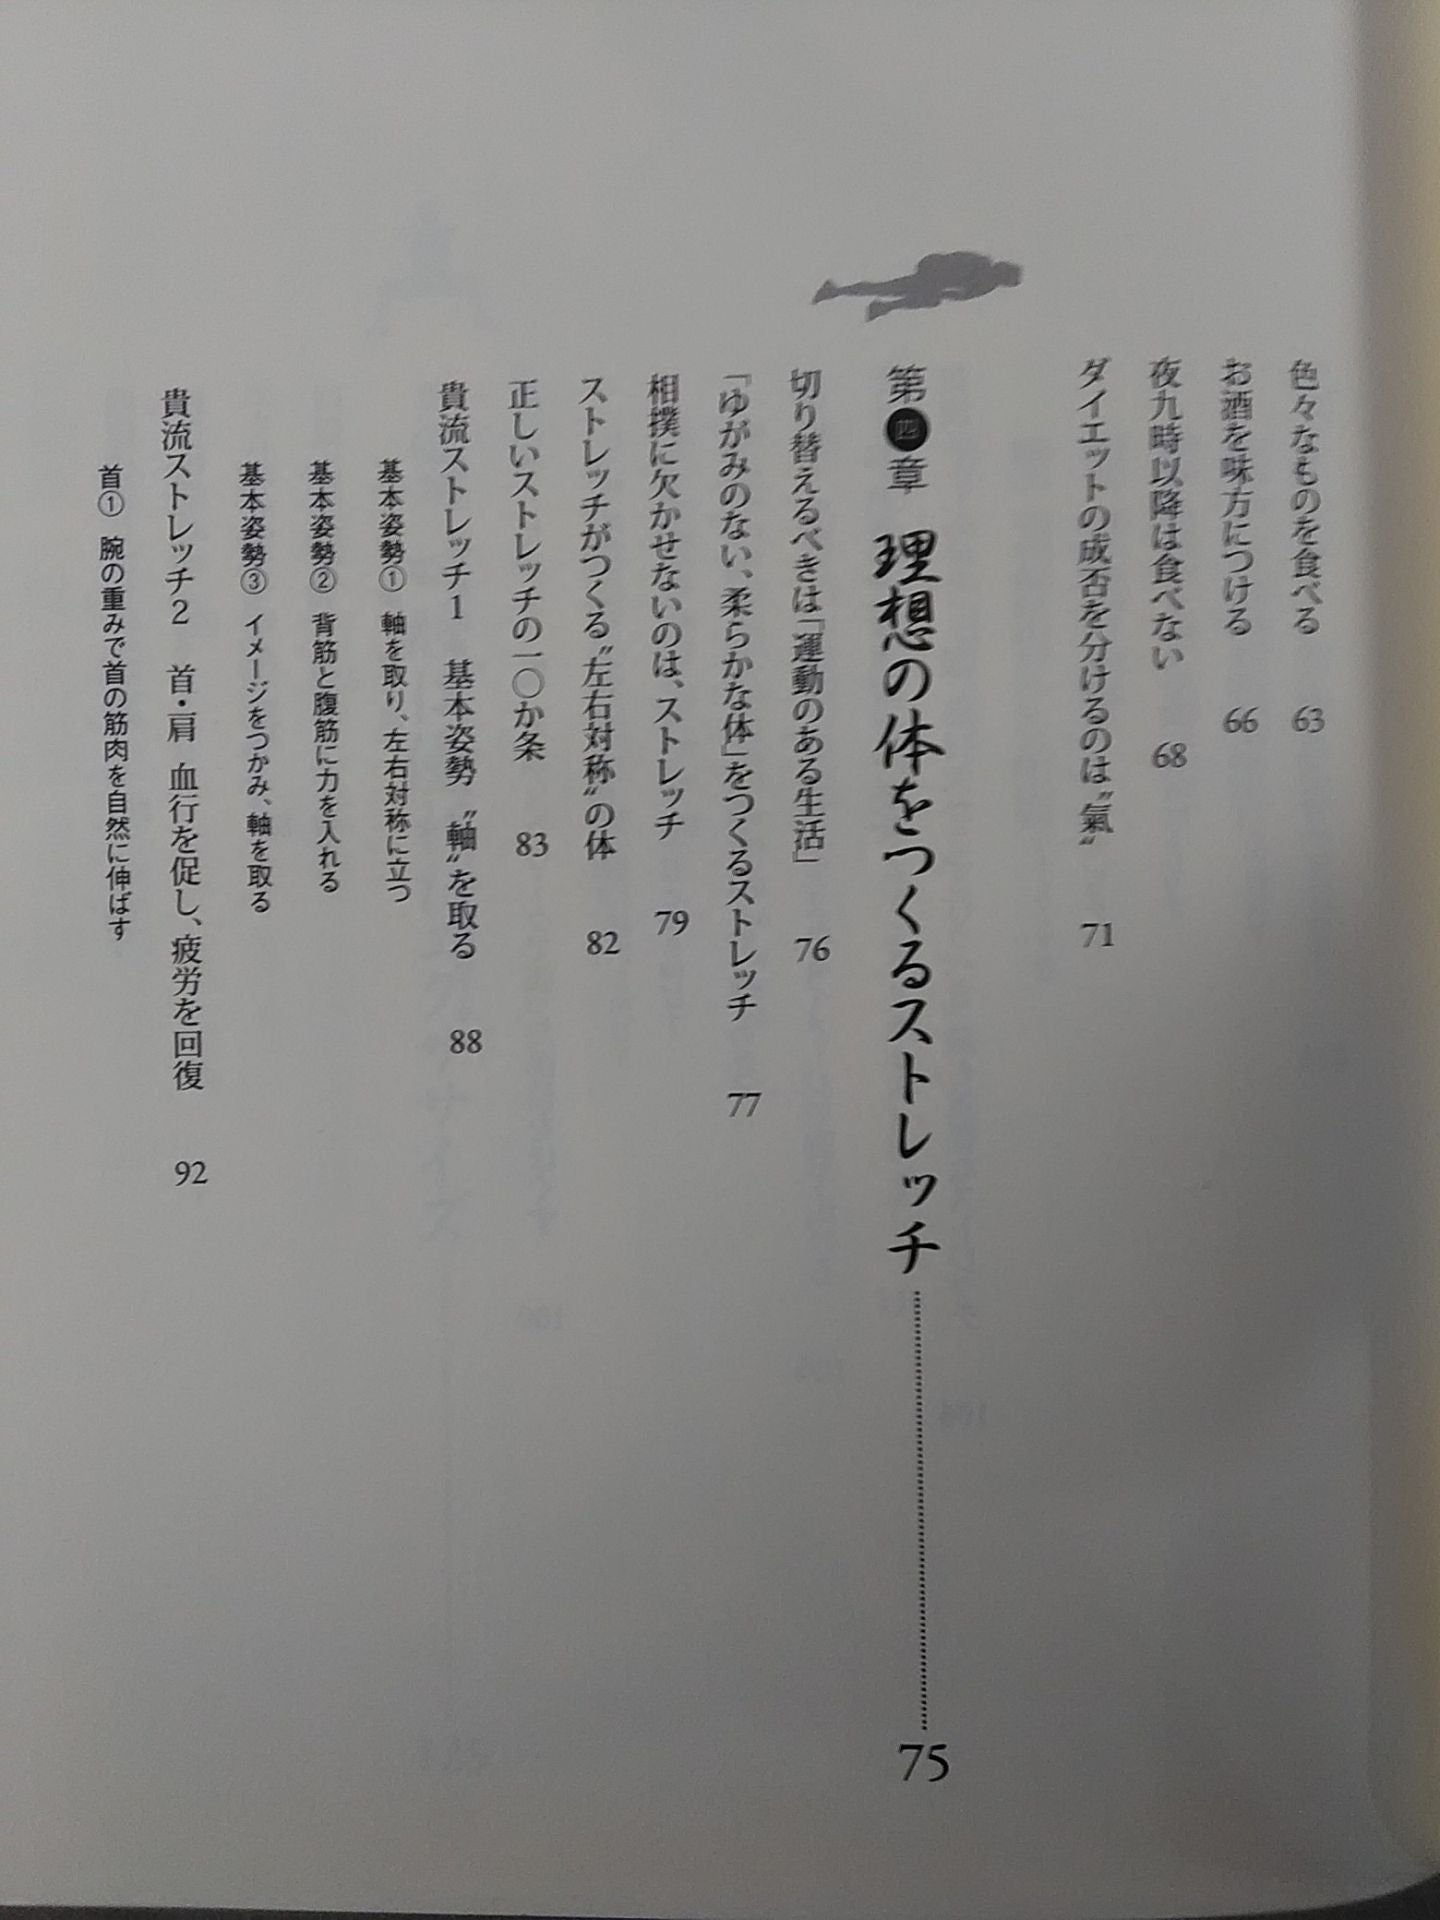 色々なものを食べる 63
お酒を味方につける 66
夜九時以降は食べない 68
ダイエットの成否を分けるのは〝氣〟 71
第四章 理想の体をつくるストレッチ 75
切り替えるべきは「運動のある生活」 76
「ゆがみのない、柔らかな体」をつくるストレッチ 77
相撲に欠かせないのは、ストレッチ 79
ストレッチがつくる〝左右対称〟の体 82
正しいストレッチの一〇か条 83
貴流ストレッチ1 基本姿勢 〝軸〟を取る 88
基本姿勢① 軸を取り、左右対称に立つ
基本姿勢② 背筋と腹筋に力を入れる
基本姿勢③ イメージをつかみ、軸を取る
貴流ストレッチ2 首・肩 血行を促し、疲労を回復 92
首① 腕の重みで首の筋肉を自然に伸ばす